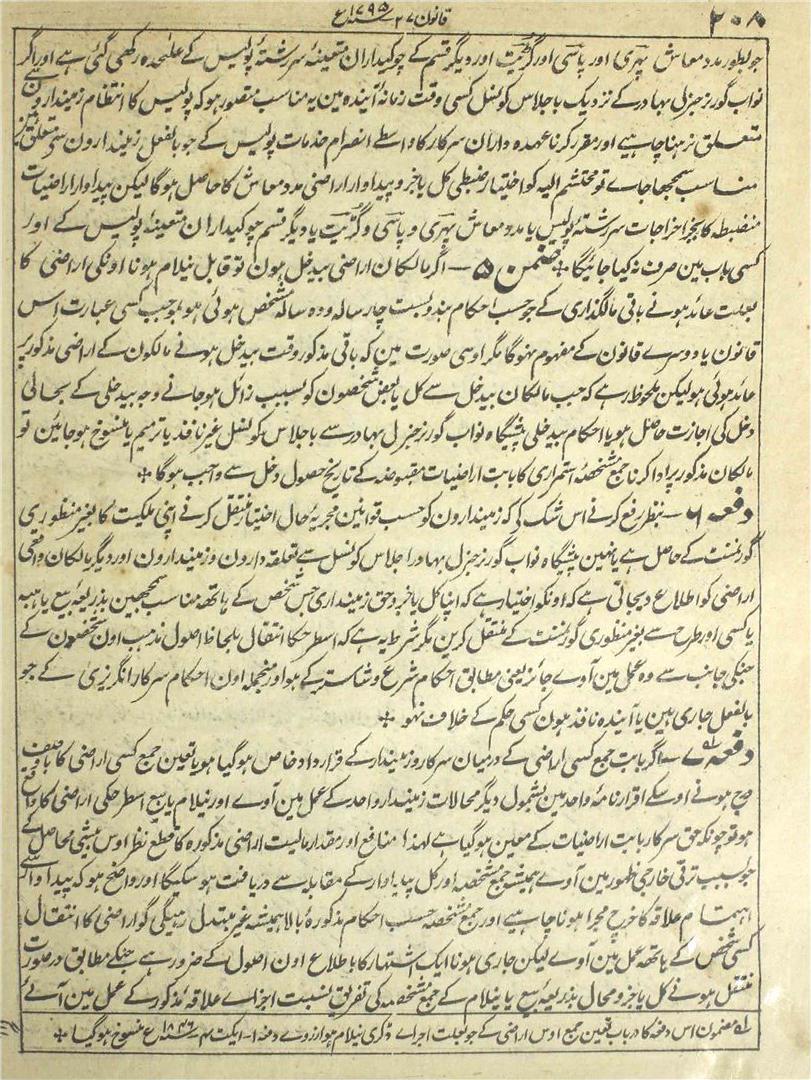 ۲۰۸
قانون ۲۷ سنہ ۱۷۹۵ع
جو بطور مدد معاش پہری اور پاسی اور گڑیت اور دیگر قسم کے چوکیداران متعینۂ سررشتۂ پولیس کے علٰحدہ رکھی گئی ہے اور اگر
نواب گورنر جنرل بہادر کے نزدیک باجلاس کونسل کسی وقت زمانۂ آیندہ مین یہ مناسب متصور ہو کہ پولیس کا انتظام زمیندارون سے
متعلق نرہنا چاہیے اور مقرر کرنا عہدہ داران سرکار کا واسطے انصرام خدمات پولیس کے جو بالفعل زمیندارون سے متعلق ہین
مناسب سمجھا جاے تو محتشم الیہ کو اختیار ضبطی کل یا جزو پیداوار اراضی مدد معاش کا حاصل ہوگا لیکن پیداوار اراضیات
منضبطہ کا بجز اخراجات سررشتۂ پولیس یا مدد معاش پہری و پاسی و گڑیت یا دیگر قسم چوکیداران متعینۂ پولیس کے اور
کسی باب مین صرف نہ کیا جائیگا ÷ ضمن ۵ — اگر مالکان اراضی بیدخل ہون تو قابل نیلام ہونا اونکی اراضی کا
بعلت عائد ہونے باقی مالگذاری کے جو حسب احکام بندوبست چار سالہ و دہ سالہ مشخص ہوئی ہو بموجب کسی عبارت اس
قانون یا دوسرے قانون کے مفہوم نہوگا مگر اوسی صورت مین کہ باقی مذکور وقت بیدخل ہونے مالکون کے اراضی مذکور پر
عائد ہوئی ہو لیکن ملحوظ رہے کہ جب مالکان بیدخل سے کل یا بعض شخصون کو بسبب زائل ہو جانے وجہ بیدخلی کے بحالی
دخل کی اجازت حاصل ہو یا احکام بیدخلی پیشگاہ نواب گورنر جنرل بہادر سے باجلاس کونسل غیر نافذ یا ترمیم یا منسوخ ہو جائین تو
مالکان مذکور پر ادا کرنا جمع مشخصۂ استمراری کا بابت اراضیات مقبوضہ کے تاریخ حصول دخل سے واجب ہوگا ÷
دفعہ ۶ — بنظر رفع کرنے اس شک کی کہ زمیندارون کو حسب قوانین مجریہ حال اختیار منتقل کرنے اپنی ملکیت کا بغیر منظوری
گورنمنٹ کے حاصل ہے یا نہین پیشگاہ نواب گورنر جنرل بہادر اجلاس کونسل سے تعلقہ دارون و زمیندارون اور دیگر مالکان واقعی
اراضی کو اطلاع دیجاتی ہے کہ اونکو اختیار ہے کہ اپنا کل یا جزو حق زمینداری جس شخص کے ہاتھ مناسب سمجھین بذریعہ بیع یا ہبہ
یا کسی اور طرح سے بغیر منظوری گورنمنٹ کے منتقل کرین مگر شرط یہ ہے کہ اسطرحکا انتقال بلحاظ اصول مذہب اون شخصون کے
جنکی جانب سے وہ عمل مین آوے جائز یعنی مطابق احکام شرع و شاستر کے ہو اور منجملہ اون احکام سرکار انگریزی کے جو
بالفعل جاری ہین یا آیندہ نافذ ہون کسی حکم کے خلاف نہو ÷
دفعہ ۷ — اگر بابت جمع کسی اراضی کے درمیان سرکار و زمیندار کے قرارداد خاص ہو گیا ہو یا تعین جمع کسی اراضی کا باوصف
درج ہونے اوسکے اقرارنامۂ واحد مین بشمول دیگر محالات زمیندار واحد کے عمل مین آوے اور نیلام یا بیع اسطرحکی اراضی کا واقع
ہو تو چونکہ حق سرکار بابت اراضیات کے معین ہو گیا ہے لہذا منافع اور مقدار مالیت اراضی مذکورہ کا قطع نظر اوس بیشی محاصل کے
جو بسبب ترقی خارجی ظہور مین آوے ہمیشہ جمع مشخصہ اور کل پیداوار کے مقابلہ سے دریافت ہو سکیگا اور واضح ہو کہ پیداوار سے
اہتمام علاقہ کا خرچ مجرا ہونا چاہیے اور جمع مشخصہ حسب احکام مذکورۂ بالا ہمیشہ غیر مبتدل رہیگی گو اراضی کا انتقال
کسی شخص کے ہاتھ عمل مین آوے لیکن جاری ہونا ایک اشتہار کا باطلاع اون اصول کے ضرور ہے جنکے مطابق درصورت
منتقل ہونے کل یا جزو محال بذریعہ بیع یا نیلام کے جمع مشخصہ کی تفریق بنسبت اجزاے علاقۂ مذکور کے عمل مین آئے
لہ مضمون اس دفعہ کا درباب تعین جمع اوس اراضی کے جو بعلت اجراے ڈگری نیلام ہو ازروے دفعہ ۱ - ایکٹ ۴ سنہ ۱۸۴۶ع منسوخ ہوگیا ÷